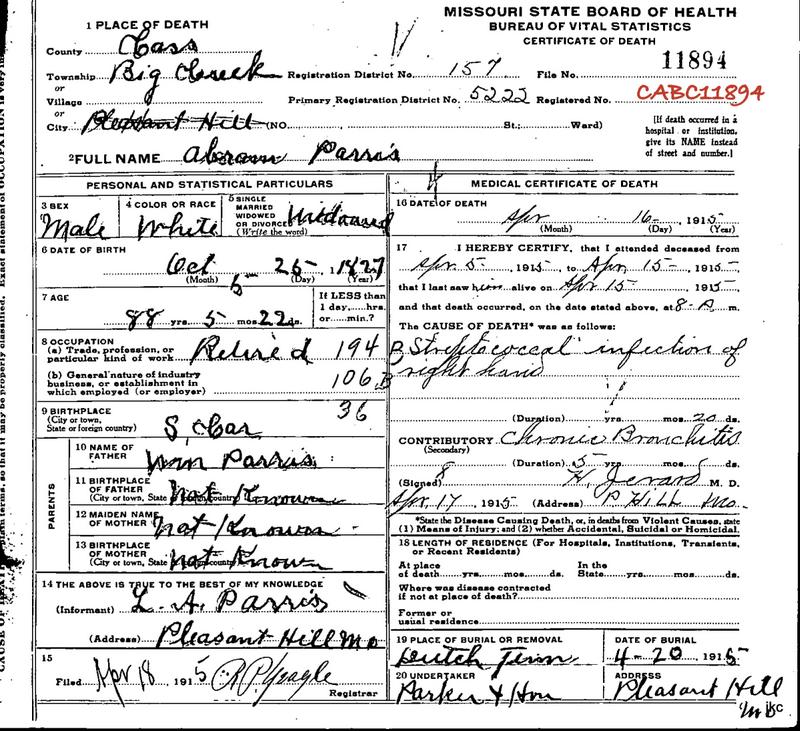 MISSOURI STATE BOARD OF HEALTH
BUREAU OF VITAL STATISTICS
CERTIFICATE OF DEATH
1 PLACE OF DEATH
County Cass
Township Big Creek Registration District No. 157 File No. 11894
or
Village Primary Registration District No. 5222 Registered No. CABC11894
or
City Pleasant Hill (NO. St.; Ward)
[If death occurred in a hospital or institution, give its NAME instead of street and number.]
2 FULL NAME Abram Parris
PERSONAL AND STATISTICAL PARTICULARS
3 SEX Male
4 COLOR OR RACE White
5 SINGLE MARRIED WIDOWED OR DIVORCED (Write the word) Widowed
6 DATE OF BIRTH
Oct 25 1827
(Month) (Day) (Year)
7 AGE
88 yrs. 5 mos. 22 ds.
If LESS than 1 day,....hrs. or.....min.?
8 OCCUPATION
(a) Trade, profession, or particular kind of work Retired 194
(b) General nature of industry business, or establishment in which employed (or employer) 106 B
36
9 BIRTHPLACE
(City or town, State or foreign country) S. Car
PARENTS
10 NAME OF FATHER Wm Parris
11 BIRTHPLACE OF FATHER (City or town, State Not Known
12 MAIDEN NAME OF MOTHER Not Known
13 BIRTHPLACE OF MOTHER (City or town, State Not Known
14 THE ABOVE IS TRUE TO THE BEST OF MY KNOWLEDGE
(Informant) L. A. Parris
(Address) Pleasant Hill Mo
15
Filed Apr 18, 1915
Registrar
MEDICAL CERTIFICATE OF DEATH
16 DATE OF DEATH
Apr 16 1915
(Month) (Day) (Year)
17 I HEREBY CERTIFY, that I attended deceased from
Apr 5, 1915, to Apr 15, 1915,
that I last saw him alive on Apr 15, 1915,
and that death occurred, on the date stated above, at 8-A m.
The CAUSE OF DEATH* was as follows:
Streptococcal infection of
right hand
(Duration) yrs. mos. 20 ds.
CONTRIBUTORY Chronic Bronchitis
(Secondary)
(Duration) 5 yrs. mos. ds.
(Signed) H. Jerard M. D.
Apr. 17, 1915 (Address) P Hill Mo.
*State the Disease Causing Death, or, in deaths from Violent Causes, state
(1) Means of Injury; and (2) whether Accidental, Suicidal or Homicidal.
18 LENGTH OF RESIDENCE (For Hospitals, Institutions, Transients, or Recent Residents)
At place of death yrs. mos. ds. In the State yrs. mos. ds.
Where was disease contracted
if not at place of death?
Former or
usual residence
19 PLACE OF BURIAL OR REMOVAL
DATE OF BURIAL
4-20, 1915
20 UNDERTAKER
Parker &
ADDRESS
Pleasant Hill
Mo